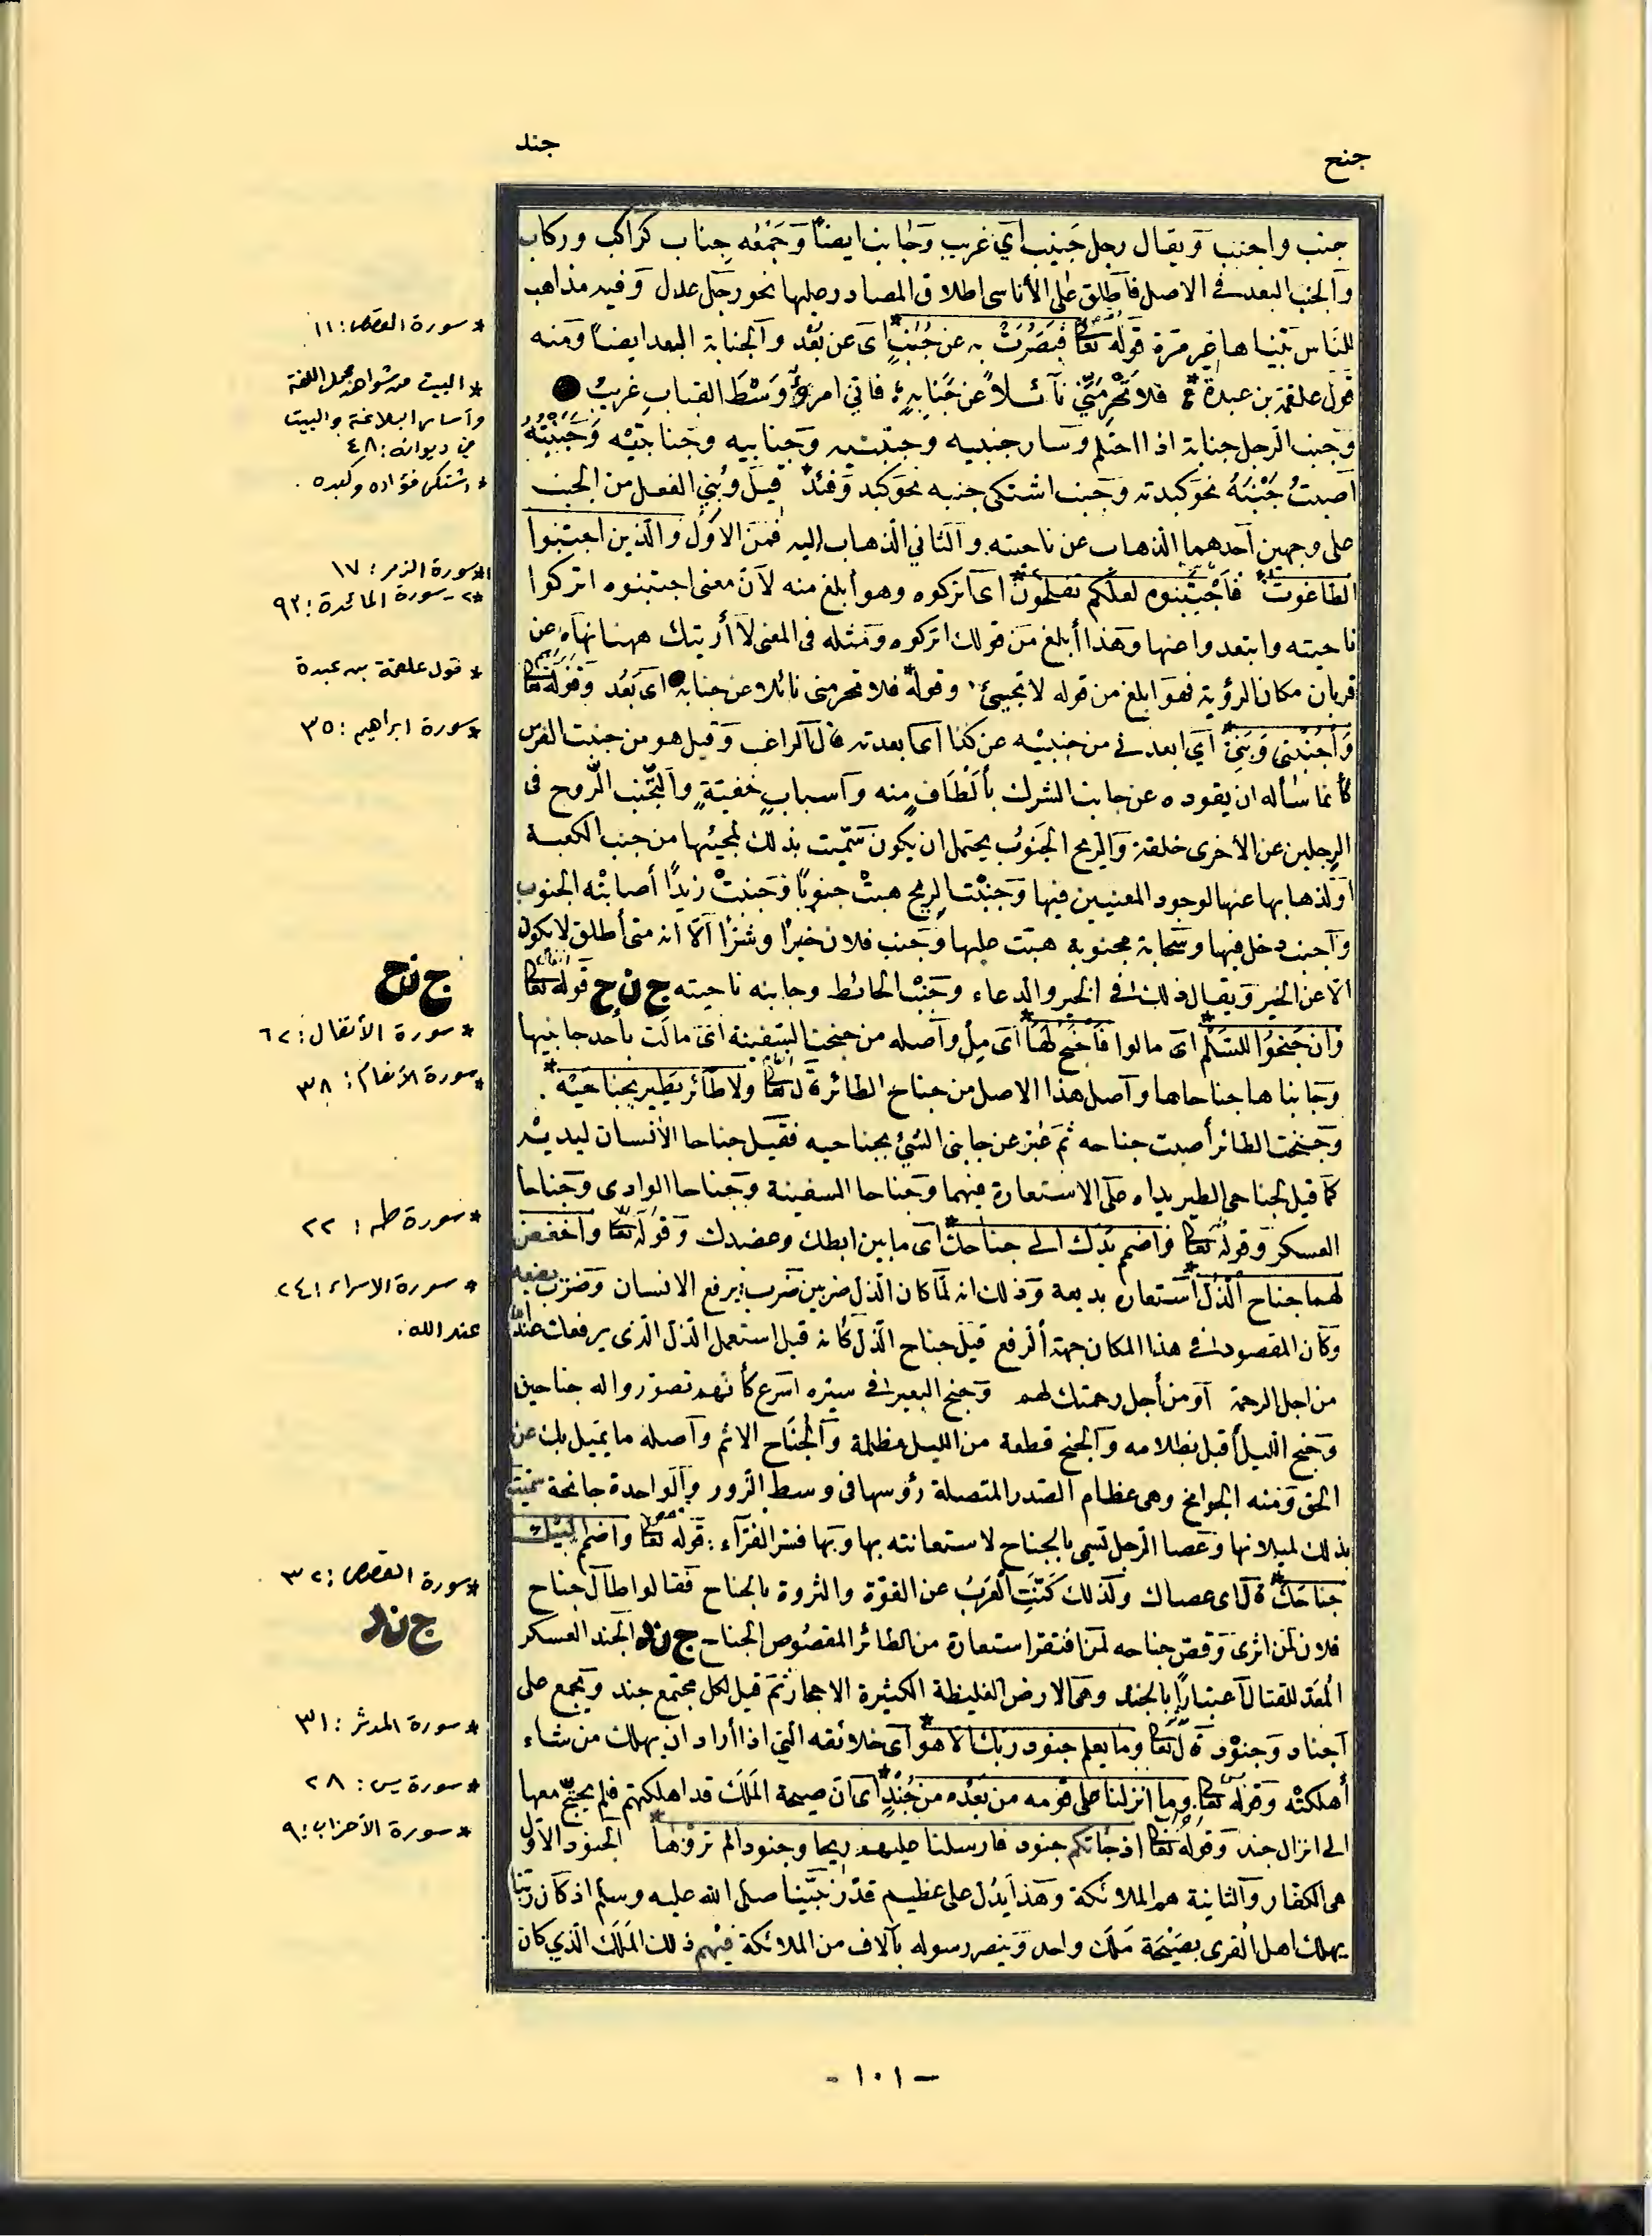 جنح
جند
جنب واجنب ويقال رجل جَنيب أي غريب وجانب ايضاً وجمعه جِناب كراكب وركاب
والجنب البعد في الاصل فأطلق على الأناسى اطلاق المصادر عليها نحو رجل عدل وفيه مذاهب
للناس بيّناها غير مرة قوله تعا فبَصُرَتْ به عن جُنُبٍ* اى عن بُعْد والجنابة البعد ايضاً ومنه
قول علقمة بن عبدة* فلا تَحْرِمَنّي نآئلاً عن جَنابةٍ؛ فاني امرؤٌ وَسْطَ القباب غريبُ
وجنب الرجل جنابة اذا احتلم وسار جنبيه وجنبتيه وجنابيه وجنابتيه وجَنَبْتُهُ
اصبتُ جَنْبَهُ نحو كبدته وجنب اشتكى جنبه نحو كبد وفئد* قيل وبُنِي الفعل من الجنب
على وجهين احدهما الذهاب عن ناحيته والثاني الذهاب إليه فمن الاول والذين اجتنبوا
الطاغوت* فاجتنبوه لعلكم تفلحون* اى اتركوه وهو أبلغ منه لأن معنى اجتنبوه اتركوا
ناحيته وابتعدوا عنها وهذا أبلغ من قولك اتركوه ومثله في المعنى لا أرينك ههنا نهاه عن
قربان مكان الرؤية فهو ابلغ من قوله لا تجيئ وقوله* فلا تحرمنى نائلا عن جنابة اى بَعُد وقوله تعا
وَاجْنُبْنِى وَبَنِيَّ* أي ابعدني من جنبته عن كذا اى ابعدته قال الراغب وقيل هو من جنبت الفرس
كأنما سأله ان يقوده عن جانب الشرك بألطافٍ منه وأسبابٍ خفيّةٍ والتجنب الروح فى
الرجلين عن الاخرى خلقة والريح الجَنوب يحتمل ان يكون سمّيت بذلك لمجيئها من جنب الكعبة
او لذهابها عنها لوجود المعنيين فيها وجَنَبت الريح هبتْ جنوباً وجَنبتْ زيداً أصابتْه الجنوب
واجنب دخل فيها وسحابة مجنوبة هبّت عليها وجنب فلان خيرًا وشرًا الّا انه متى أطلق لا يكون
الّا عن الخير ويقال ذلك في الخير والدعاء وجَنْب الحائط وجانبه ناحيته ج ن ح قوله تعا
وان جَنحُوا للسَلْم* اى مالوا فاجنح لها* اى مِلْ واصله من جنحت السفينة اى مالت بأحد جانبيها
وجانباها جناحاها واصل هذا الاصل من جناح الطائر قال تعا ولا طائر يَطير بجناحَيْه*.
وجنحت الطائر أصبت جناحه ثم عُبّر عن جانبى الشئ بجناحيه فقيل جناحا الانسان ليديه
كما قيل لجناحى الطير يداه على الاستعارة فيهما وجناحا السفينة وجناحا الوادى وجناحا
العسكر وقوله تعا واضمم يدك الى جناحك* اى ما بين ابطك وعضدك وقوله تعا واخفض
لهما جناح الذل* استعارة بديعة وذلك انه لمّا كان الذل ضربين ضرب يرفع الانسان وضرب يضعه
وكان المقصود في هذا المكان جهة الرفع قيل جناح الذل كأنه قيل استعمل الذل الذى يرفعك عند الله
من اجل الرحمة او من أجل رحمتك لهم وجنح البعير في سيره اسرع كأنهم تصوّروا له جناحين
وجنح الليل أقبل بظلامه والجنح قطعة من الليل مظلمة والجُنَاح الاثم واصله ما يميل بك عن
الحق ومنه الجوانح وهى عظام الصدر المتصلة رؤسها فى وسط الزور والواحدة جانحة سمّيت
بذلك لميلانها وعصا الرجل تسمى بالجناح لاستعانته بها وبها فسّر الفرّاء: قوله تعا واضمم اليك
جناحك* قال اى عصاك ولذلك كَنَّتِ العَرَبُ عن القوّة والثروة بالجناح فقالوا طال جناح
فلان لمن اثرى وقصّ جناحه لمن افتقر استعارة من الطائر المقصوص الجناح ج ن د الجند العسكر
المُعَدّ للقتال اعتبارًا بالجند وهى الارض الغليظة الكثيرة الاحجار ثم قيل لكل مجتمع جند ويجمع على
اجناد وجنود قال تعا وما يعلم جنود ربك الا هو* اى خلائقه التي اذا أراد ان يهلك من شاء
أهلكتْه وقوله تعا وما انزلنا على قومه من بَعْده من جُنْدٍ* اى ان صيحة المَلَك قد اهلكتهم فلم يحتج معها
الى انزال جند وقوله تعا اذ جاءتكم جنود فارسلنا عليهم ريحا وجنودا لم تروْها* الجنود الاول
هى الكفار والثانية هم الملائكة وهذا يدُل على عظيم قدْر نبيّنا صلى الله عليه وسلم اذ كان ربّنا
يهلك اهل القرى بصَيْحَة مَلَك واحد وينصر رسوله بآلاف من الملائكة فيْهم ذلك المَلَك الذي كان
* سورة القصص: ١١
* البيت من شواهد مجمل اللغة
وأساس البلاغة والبيت
في ديوانه: ٤٨
* اشتكى فؤاده وكبده.
١* سورة الزمر: ١٧
٢* - سورة المائدة: ٩٢
* قول علقمة بن عبدة
* سورة ابراهيم: ٣٥
ج ن ح
* سورة الأنفال: ٦٢
* سورة الأنعام: ٣٨
* سورة طه: ٢٢
* سورة الاسراء: ٢٤
عند الله.
* سورة القصص: ٣٢
ج ن د
* سورة المدثر: ٣١
* سورة يس: ٢٨
* سورة الأحزاب: ٩
- ١٠١ -